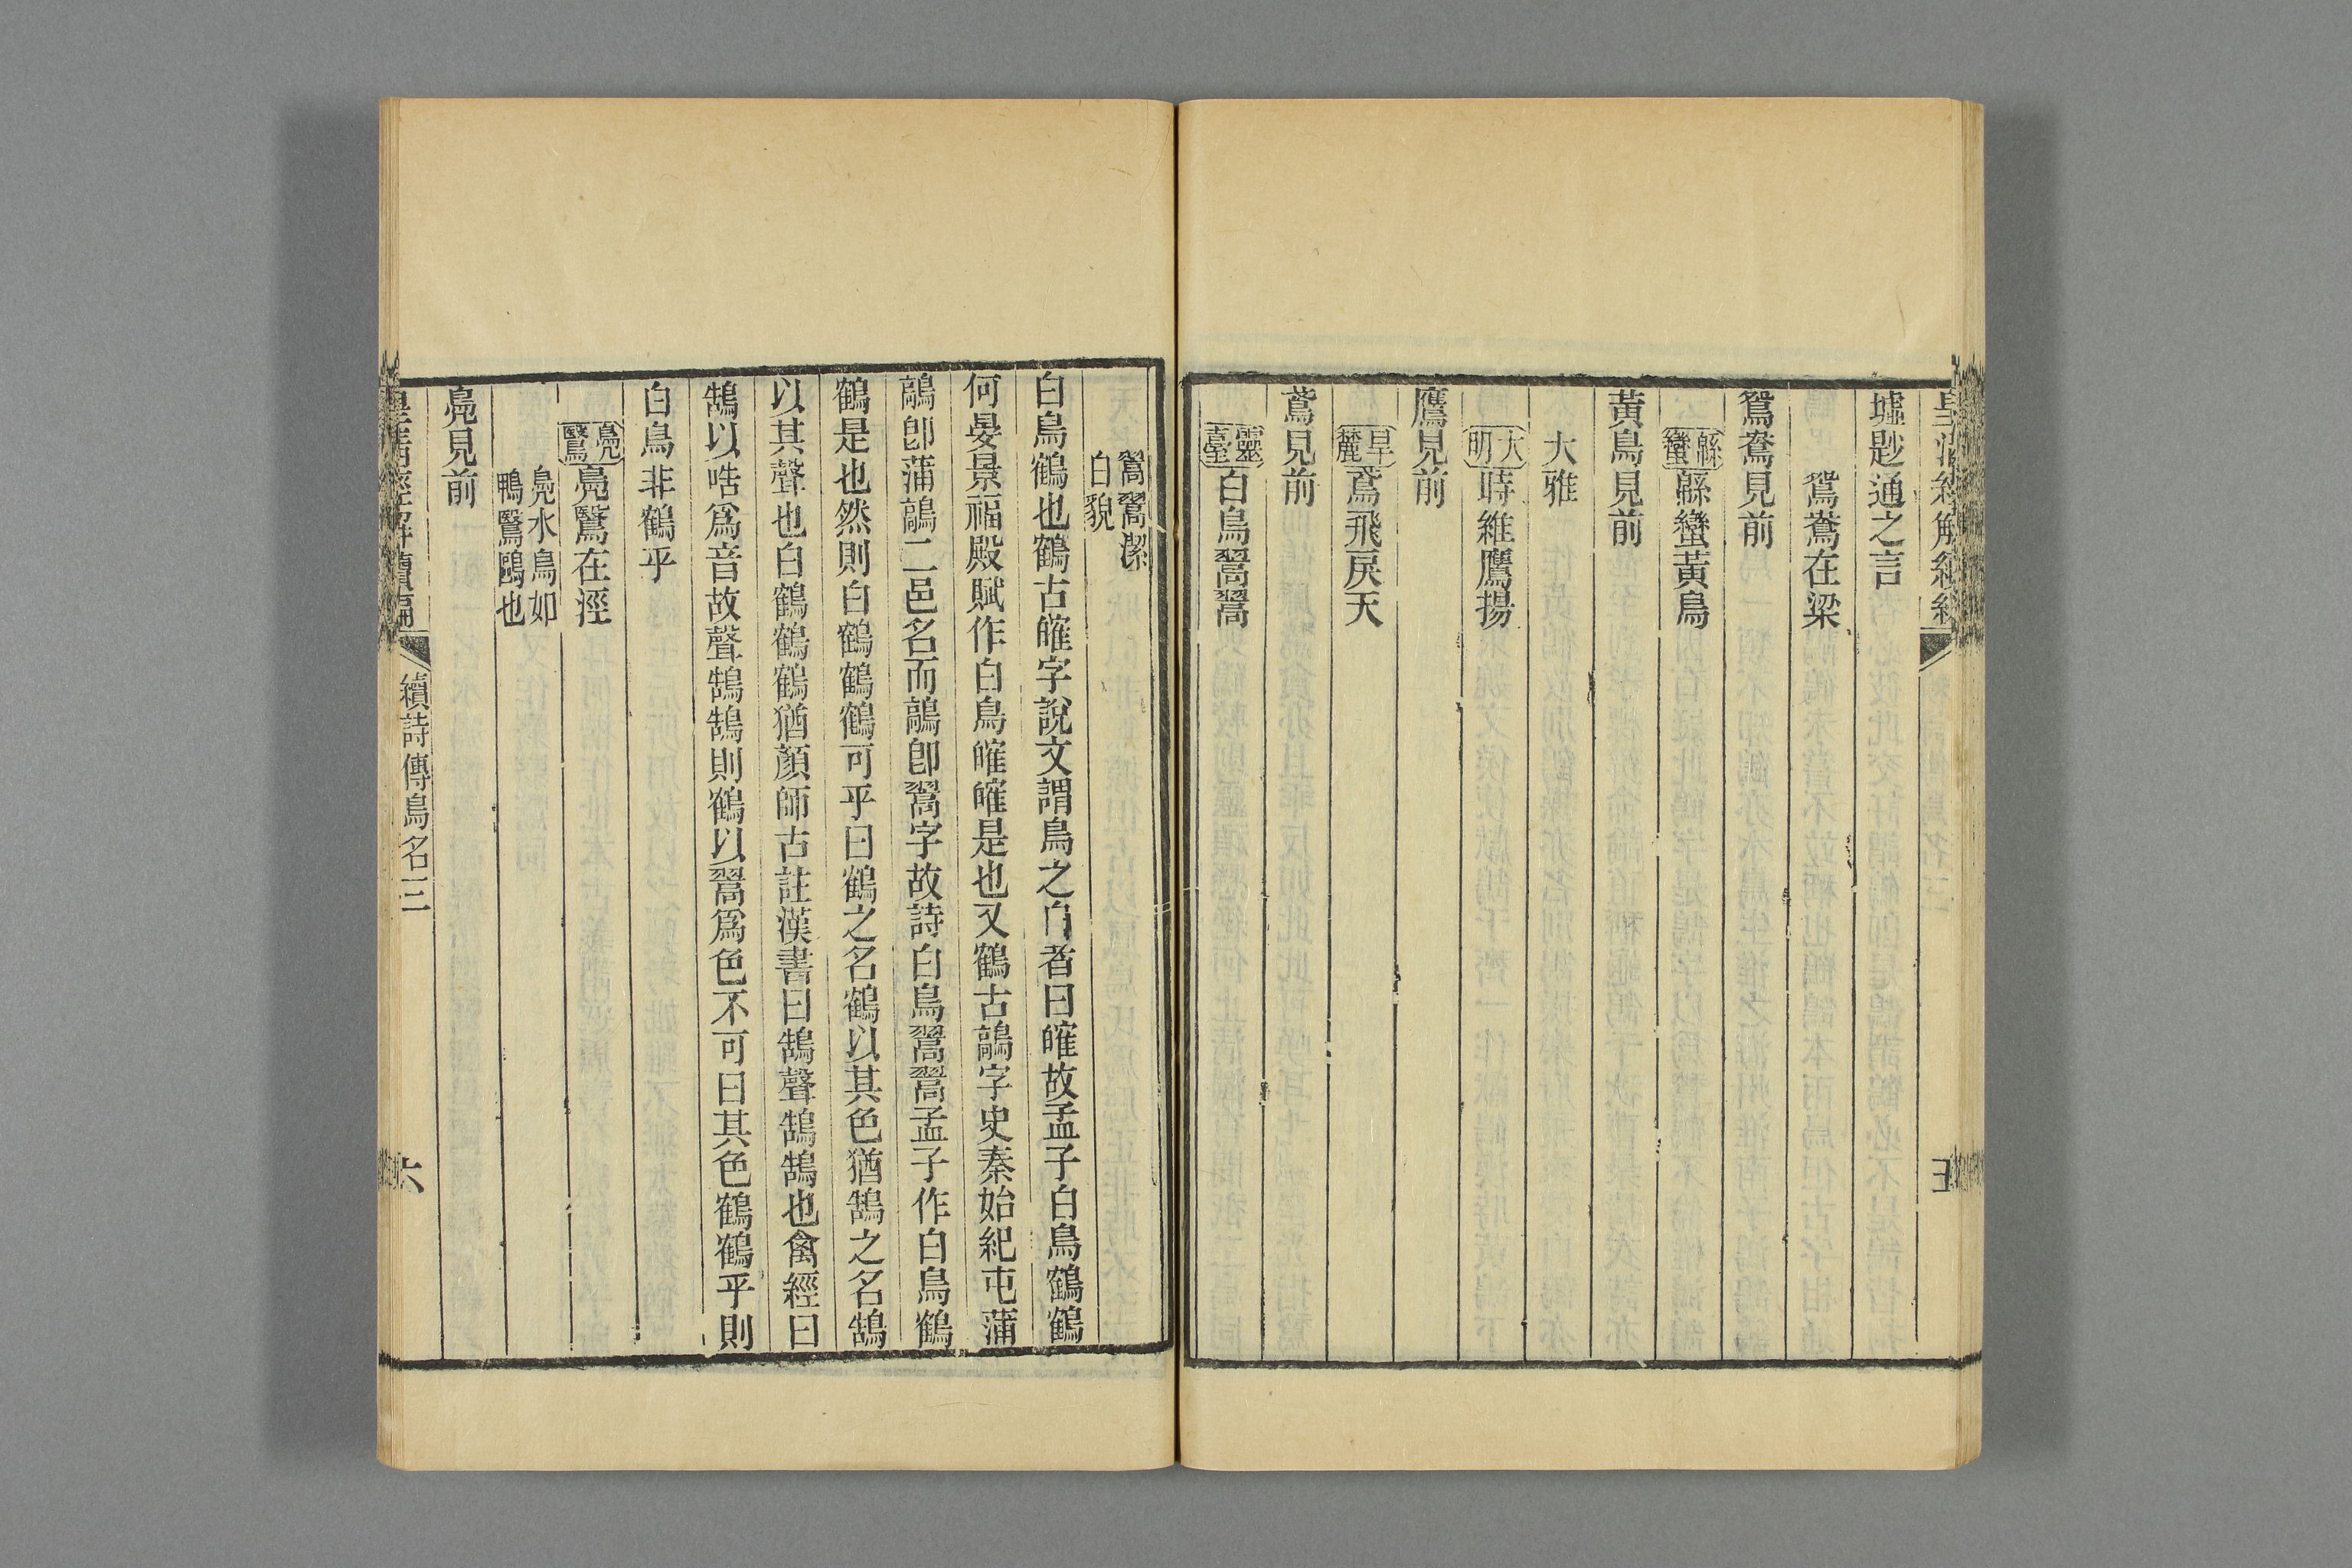 墟尟通之言
鴛鴦在梁
鴛鴦見前
緜蠻緜蠻黃鳥
黃鳥見前
大雅
大明時維鷹揚
鷹見前
旱麓鳶飛戾天
鳶見前
靈臺白鳥翯翯
翯翯潔
白貌
白鳥鶴也鶴古㿥字說文謂鳥之白者曰㿥故孟子白鳥鶴鶴
何晏景福殿賦作白鳥㿥㿥是也又鶴古鶮字史秦始紀屯蒲
鶮卽蒲鶮二邑名而鶮卽翯字故詩白鳥翯翯孟子作白鳥鶴
鶴是也然則白鶴鶴鶴可乎曰鶴之名鶴以其色猶鵠之名鵠
以其聲也白鶴鶴鶴猶顏師古註漢書曰鵠聲鵠鵠也禽經曰
鵠以㖡爲音故聲鵠鵠則鶴以翯爲色不可曰其色鶴鶴乎則
白鳥非鶴乎
鳧鷖鳧鷖在涇
鳧水鳥如
鴨鷖鷗也
鳧見前
續詩傳鳥名三
六